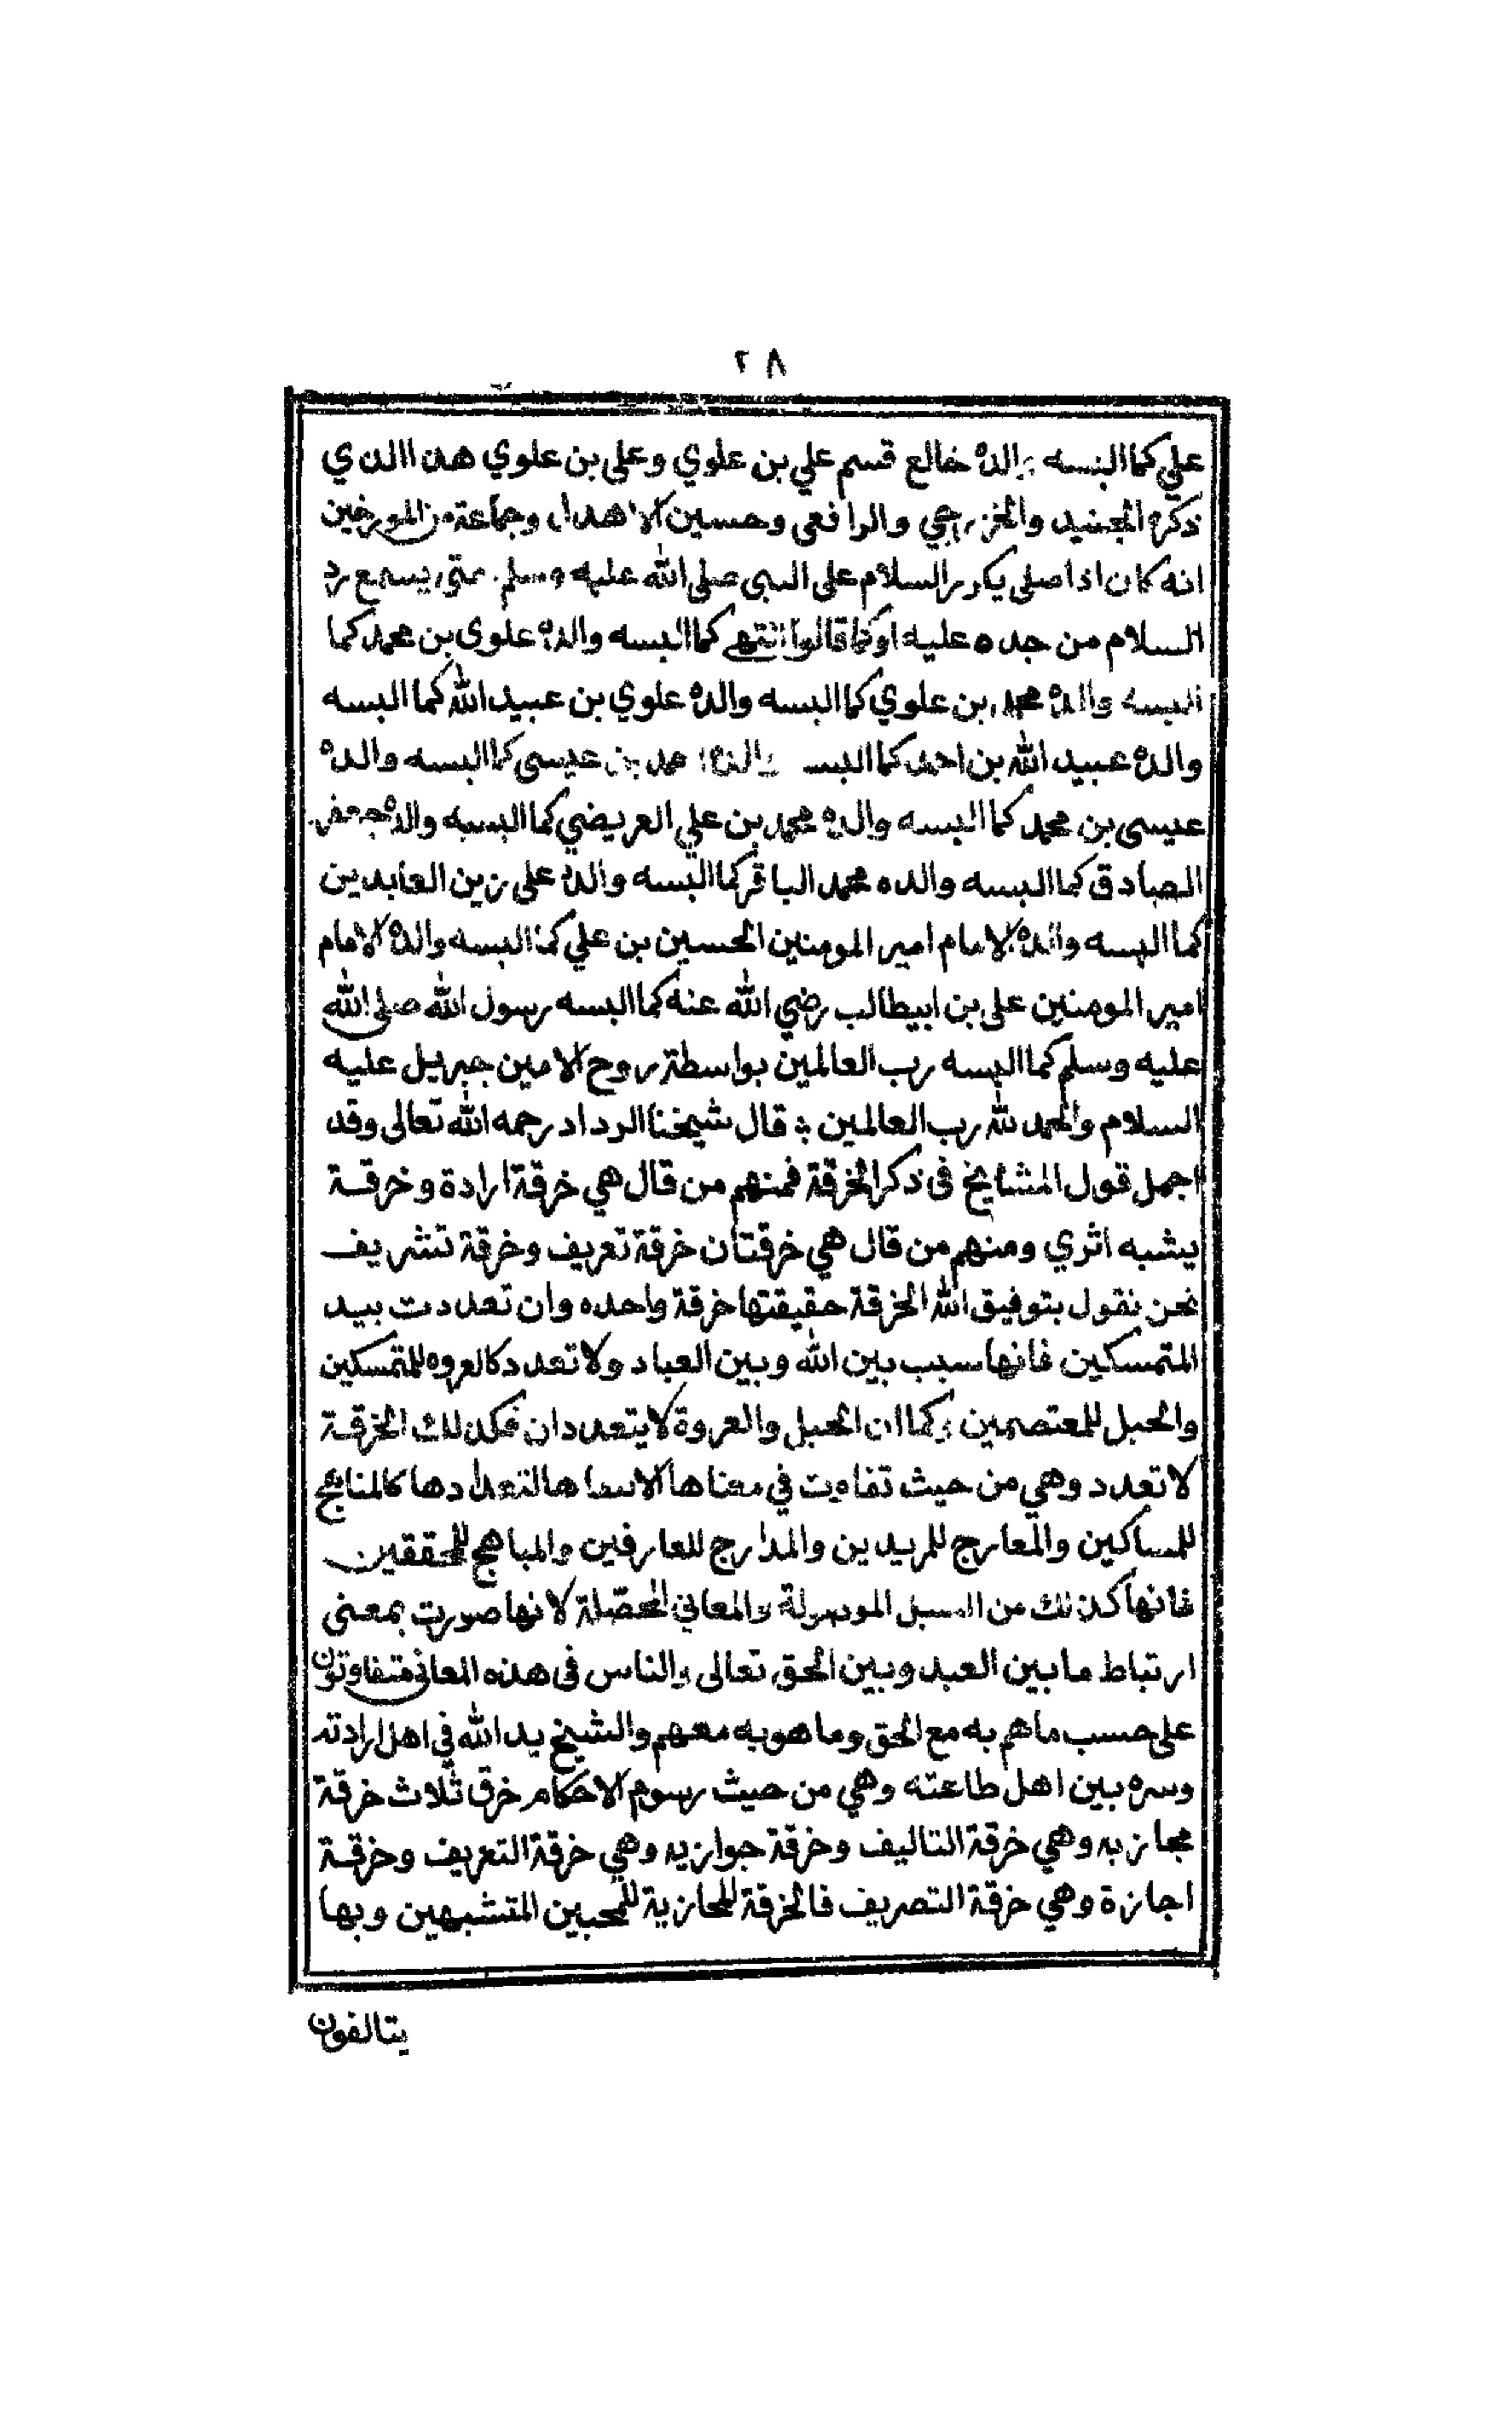 ٢٨
علي كما البسه والده خالع قسم علي بن علوي وعلى بن علوي هذا الذي
ذكره الجنيد والخزرجي والرافعى وحسين الاهدل وجماعة من المورخين
انه كان اذا صلى يكرر السلام على النبي صلى الله عليه وسلم حتى يسمع رد
السلام من جده عليه او كما قالوا انتهى كما البسه والده علوى بن محمد كما
البسه والده محمد بن علوي كما البسه والده علوي بن عبيد الله كما البسه
والده عبيد الله بن احمد كما البسه والده احمد بن عيسى كما البسه والده
عيسى بن محمد كما البسه والده محمد بن علي العريضي كما البسه والده جعفر
الصادق كما البسه والده محمد الباقر كما البسه والده على زين العابدين
كما البسه والده الامام امير المومنين الحسين بن علي كما البسه والده الامام
امير المومنين على بن ابيطالب رضي الله عنه كما البسه رسول الله صلى الله
عليه وسلم كما البسه رب العالمين بواسطة روح الامين جبريل عليه
السلام والحمد لله رب العالمين قال شيخنا الرداد رحمه الله تعالى وقد
اجمل قول المشايخ فى ذكر الخرقة فمنهم من قال هي خرقة ارادة وخرقة
يشبه اثري ومنهم من قال هي خرقتان خرقة تعريف وخرقة تشريف
نحن نقول بتوفيق الله الخرقة حقيقتها خرقة واحده وان تعددت بيد
المتمسكين فانها سبب بين الله وبين العباد ولا تعدد كالعروه للمتمسكين
والحبل للمعتصمين وكما ان الحبل والعروة لا يتعددان فكذلك الخرقة
لا تعدد وهي من حيث تفاوت في معناها لا التعددها كالمناهج
للمساكين والمعارج للمريدين والمدارج للعارفين والمباهج للمحققين
فانها كذلك من السبل الموصولة والمعاني المحصّلة لانها صورت بمعنى
ارتباط ما بين العبد وبين الحق تعالى والناس فى هذه المعانى متفاوتون
على حسب ما هم به مع الحق وما هو به معهم والشيخ يد الله في اهل ارادته
وسره بين اهل طاعته وهي من حيث رسوم الاحكام خرق ثلاث خرقة
مجازيه وهي خرقة التاليف وخرقة جوازيه وهي خرقة التعريف وخرقة
اجازة وهي خرقة التصريف فالخرقة المجازية للمحبين المتشبهين وبها
يتالفون